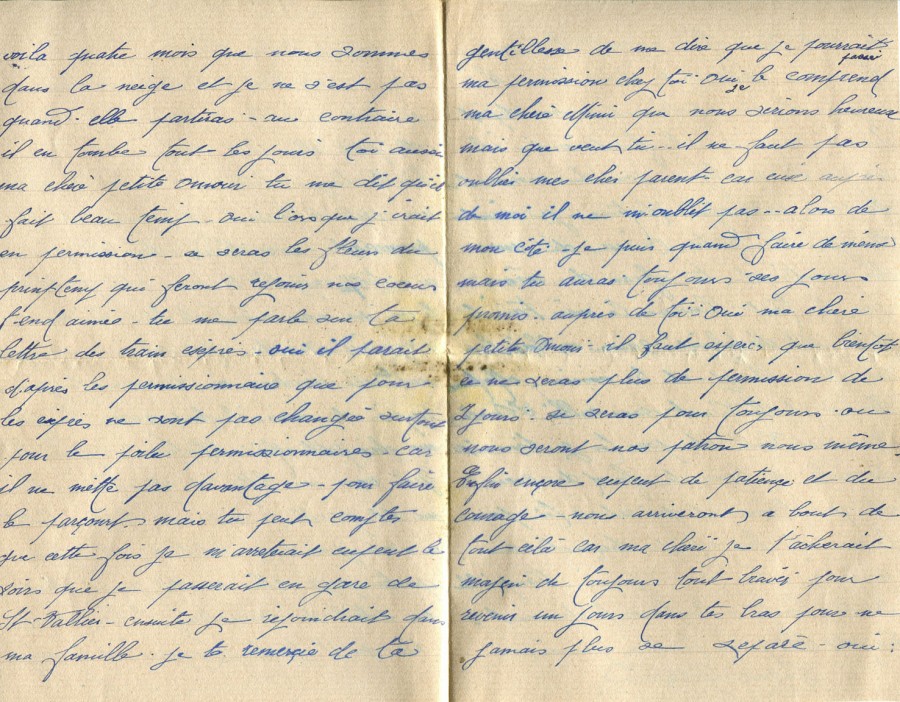 voila quatre mois que nous sommes
dans la neige et je ne s'est pas
quand elle partiras - au contraire
il en tombe tout les jours toi aussi
ma chère petite Amour tu me dit qu'il
fait beau temp - oui lorsque j'irait
en permission - se seras les fleurs du
printemp qui feront rejouir nos coeurs
tu me parle sur ta
lettre des train exprés - oui il parait
d'après les permissionnaire que pour
les exprés ne sont pas changés surtout
pour le poilu permissionnaires - car
il ne mette pas davantage - pour faire
le parçourt, mais tu peut comptes
que cette fois je m'arreterait cepent le
soirs que je passerait en gare de
St Vallier - ensuite je rejoindrait dans
ma famille. je te remerçie de ta
gentillesse de me dire que je pourrait
passer
ma permission chez toi oui je le comprend
ma chère Mimi que nous serions heureux
mais que veut tu - il ne faut pas
oublier mes cher parents car eux
de moi il ne m'oublit pas - alors de
mon côté - je puis quand faire de même
mais tu auras toujours ses jours
promis - auprès de toi - Oui ma chère
petite Amour il faut espérer que bientôt
ce ne seras plus de permission de
7 jours - se seras pour toujours - ou
nous seront nos patron nous même
Enfin ençore cepent de patience et du
courage - nous arriveront a bout de
tout cela car ma chère je tâcherait
moyen de toujours tout travers pour
revenir un jours dans tes bras pour ne
jamais plus se separé - oui :